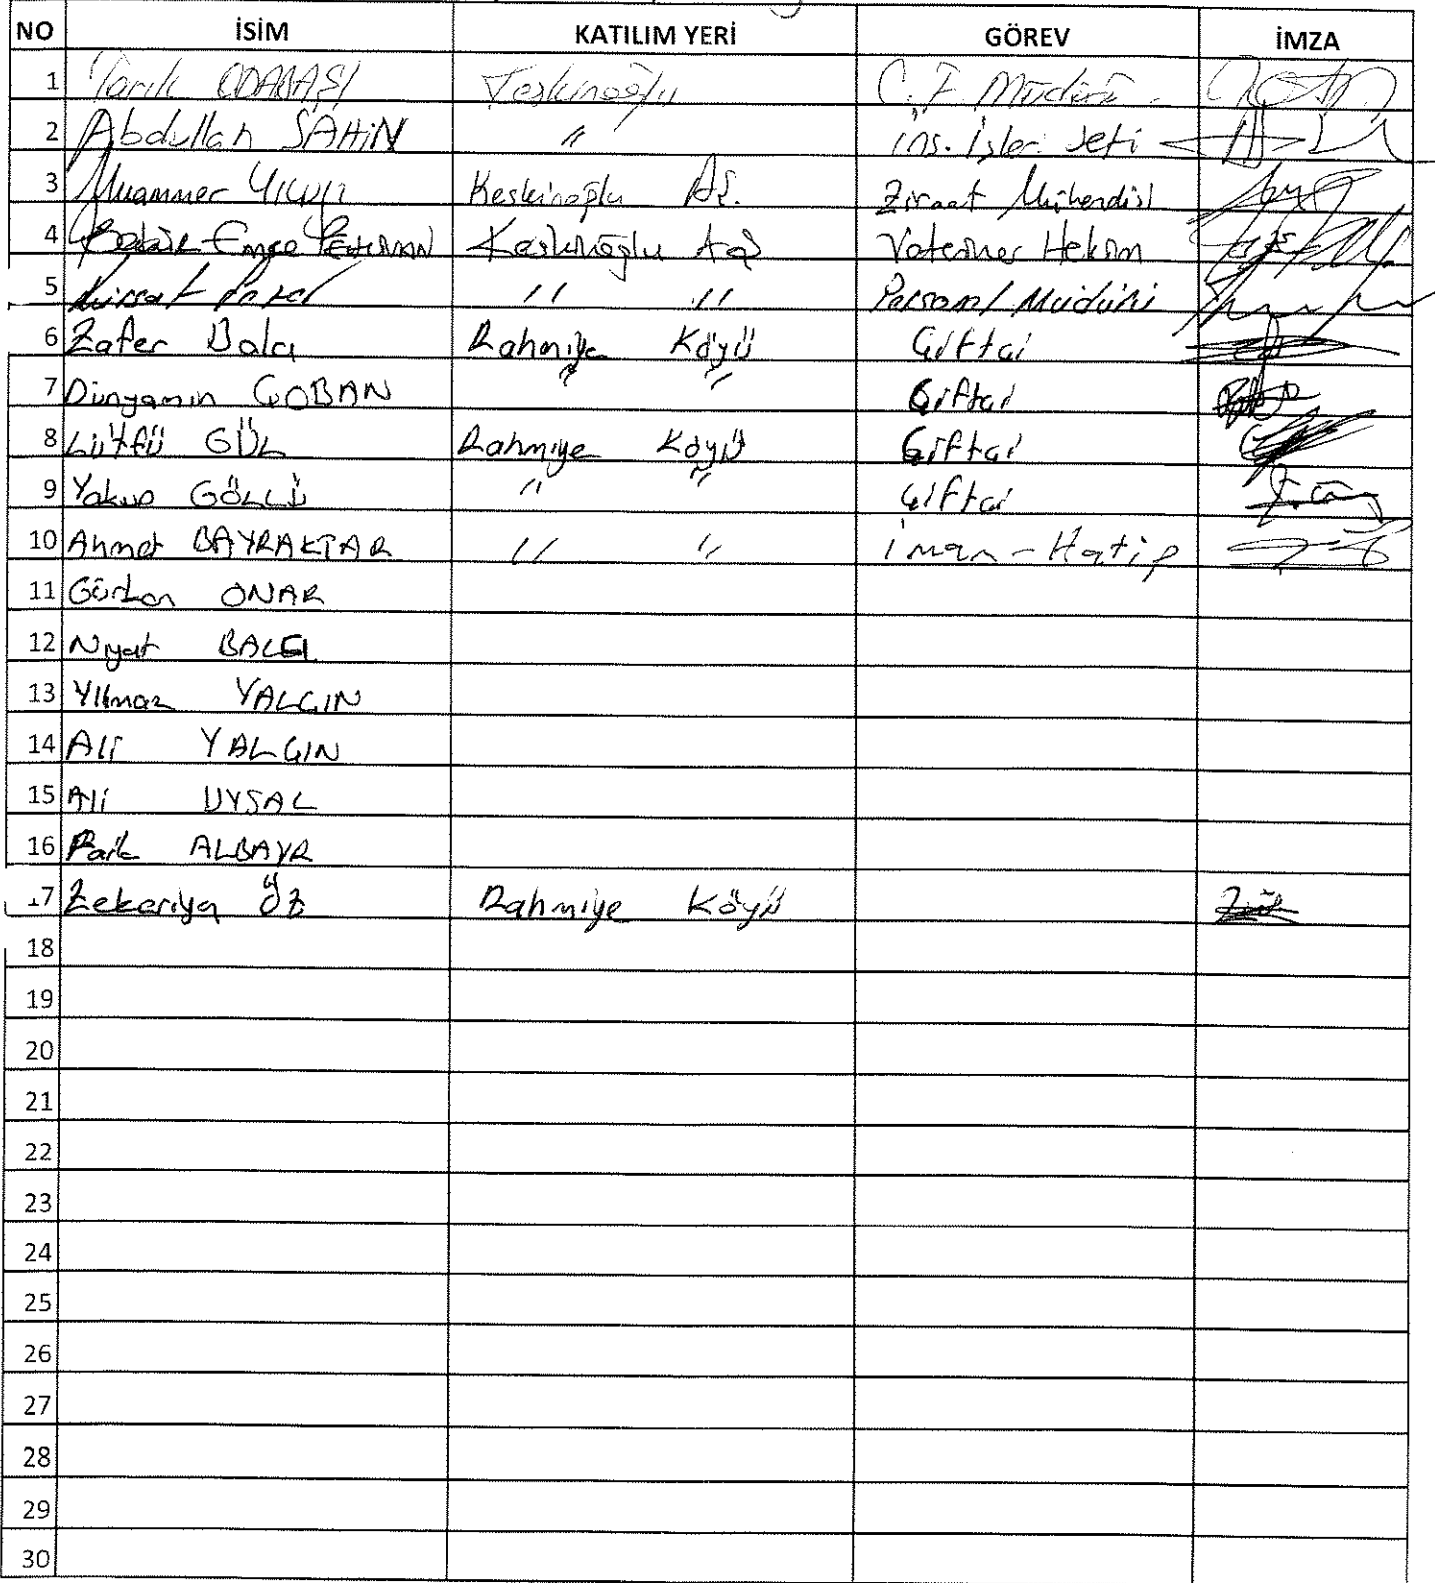 NO İSİM KATILIM YERİ GÖREV İMZA
1 Tarık ODABAŞI Keskinoğlu Ç.F. Müdürü
2 Abdullah ŞAHİN " İnş. İşleri Şefi
3 Muammer Keskinoğlu AŞ. Ziraat Mühendisi
4 Emre PEHLİVAN Keskinoğlu Aş Veteriner Hekim
5 " " Personel Müdürü
6 Zafer Balcı Rahmiye Köyü Çiftçi
7 Dünyamin ÇOBAN " " Çiftçi
8 Lütfü GÜL Rahmiye Köyü Çiftçi
9 Yakup GÖLCÜ " " Çiftçi
10 Ahmet BAYRAKTAR " " imam-Hatip
11 Gürkan ONAR
12 Niyat BALCI
13 Yılmaz YALÇIN
14 Ali YALÇIN
15 Ali UYSAL
16 Faik ALBAYR
17 Zekariya ÖZ Rahmiye Köyü
18
19
20
21
22
23
24
25
26
27
28
29
30